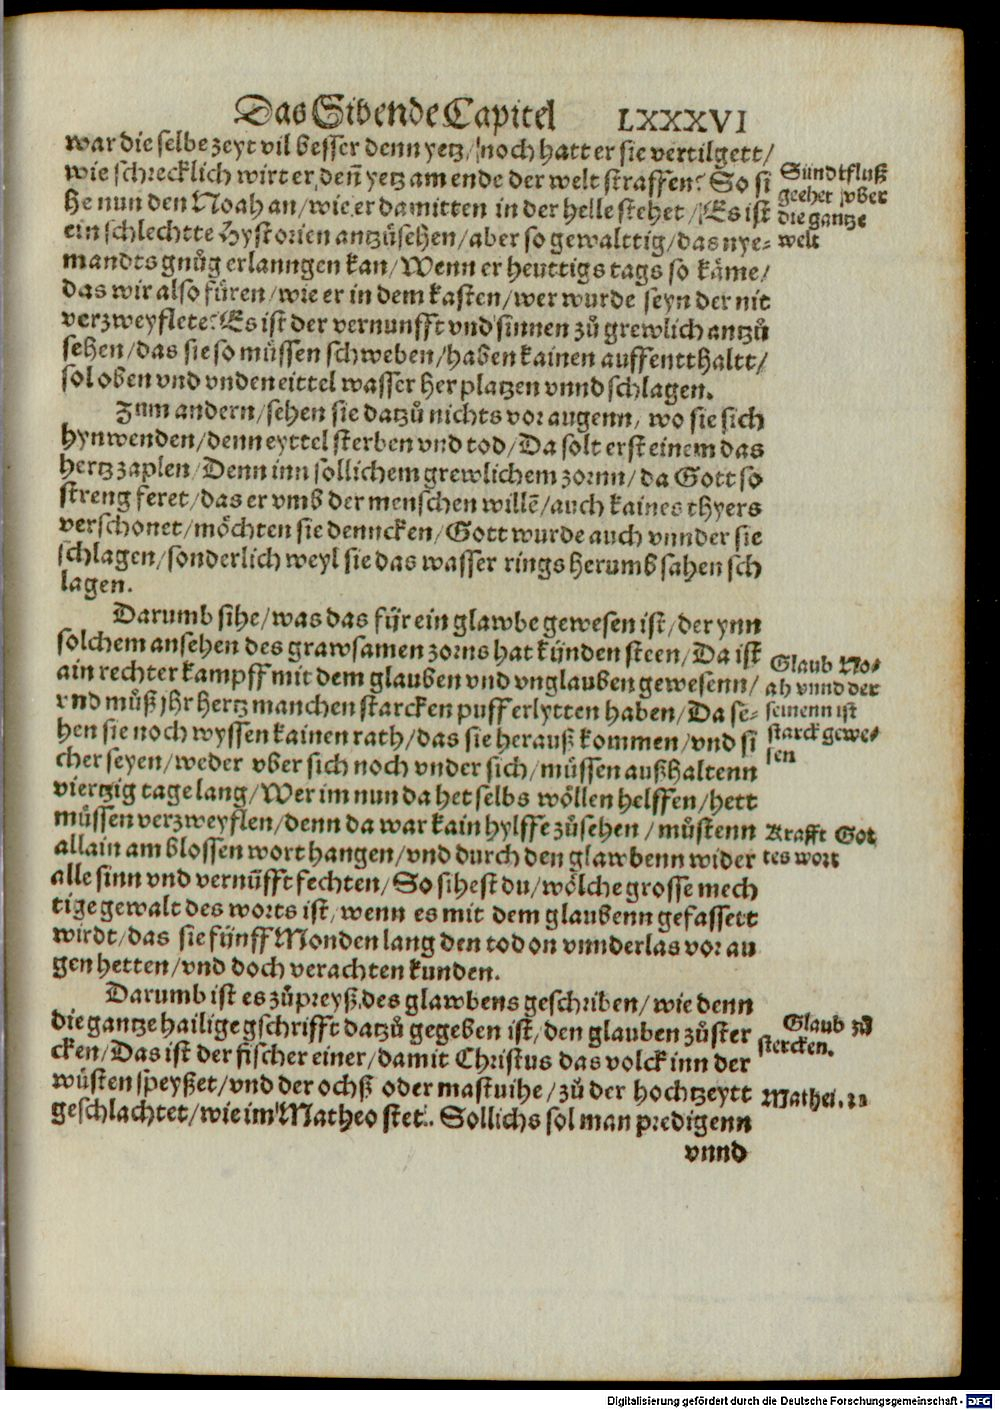 Das Sibende Capitel LXXXVI
war die selbe zeyt vil besser denn yetz/ noch hatt er sie vertilgett/
wie schrecklich wirt er denn̄ yetz am ende der welt straffen? So si
he nun den Noah an/ wie er da mitten in der helle stehet/ Es ist
ein schlechtte Hystorien antzůsehen/ aber so gewalttig/ das nye⸗
mandts gnůg erlanngen kan/ Wenn er heuttigs tags so käme/
das wir also füren/ wie er in dem kasten/ wer wurde seyn der nit
verzweyflete? Es ist der vernunfft vnd sinnen zů grewlich antzů
sehen/ das sie so müssen schweben/ haben kainen auffentthaltt/
sol oben vnd vnden eittel wasser her platzen vnnd schlagen.
Sündtfluß
geehet vber
die gantze
welt
Zum andern/ sehen sie datzů nichts vor augenn/ wo sie sich
hynwenden/ denn eyttel sterben vnd tod/ Da solt erst einem das
hertz zaplen/ Denn inn sollichem grewlichem zornn/ da Gott so
streng feret/ das er vmb der menschen willē/ auch kaines thyers
verschonet/ möchten sie denncken/ Gott wurde auch vnnder sie
schlagen/ sonderlich weyl sie das wasser rings herumb sahen sch
lagen.
Darumb sihe/ was das für ein glawbe gewesen ist/ der ynn
solchem ansehen des grawsamen zorns hat künden steen/ Da ist
ain rechter kampff mit dem glauben vnd vnglauben gewesenn/
vnd můß jhr hertz manchen starcken puff erlytten haben/ Da se⸗
hen sie noch wyssen kainen rath/ das sie herauß kommen/ vnd si
cher seyen/ weder vber sich noch vnder sich/ müssen außhaltenn
viertzig tage lang/ Wer im nun da het selbs wöllen helffen/ hett
müssen verzweyflen/ denn da war kain hylffe zůsehen/ můstenn
allain am blossen wort hangen/ vnd durch den glawbenn wider
alle sinn vnd vernūfft fechten/ So sihest du/ wölche grosse mech
tige gewalt des worts ist/ wenn es mit dem glaubenn gefassett
wirdt/ das sie fünff Monden lang den tod on vnnderlas vor au
gen hetten/ vnd doch verachten kunden.
Glaub No⸗
ah vnnd der
seinenn ist
starck gewe⸗
sen
Krafft Got
tes wort
Darumb ist es zů preyß des glawbens geschriben/ wie denn
die gantze hailige gschrifft datzů gegeben ist/ den glauben zů ster
cken/ Das ist der fischer einer/ damit Christus das volck inn der
wüsten speyßet/ vnd der ochß oder mastuihe/ zů der hochtzeytt
geschlachtet/ wie im Matheo stet. Sollichs sol man predigenn
vnnd
Glaub zů
stercken.
Mathei. 22
Digitalisierung gefördert durch die Deutsche Forschungsgemeinschaft - DFG